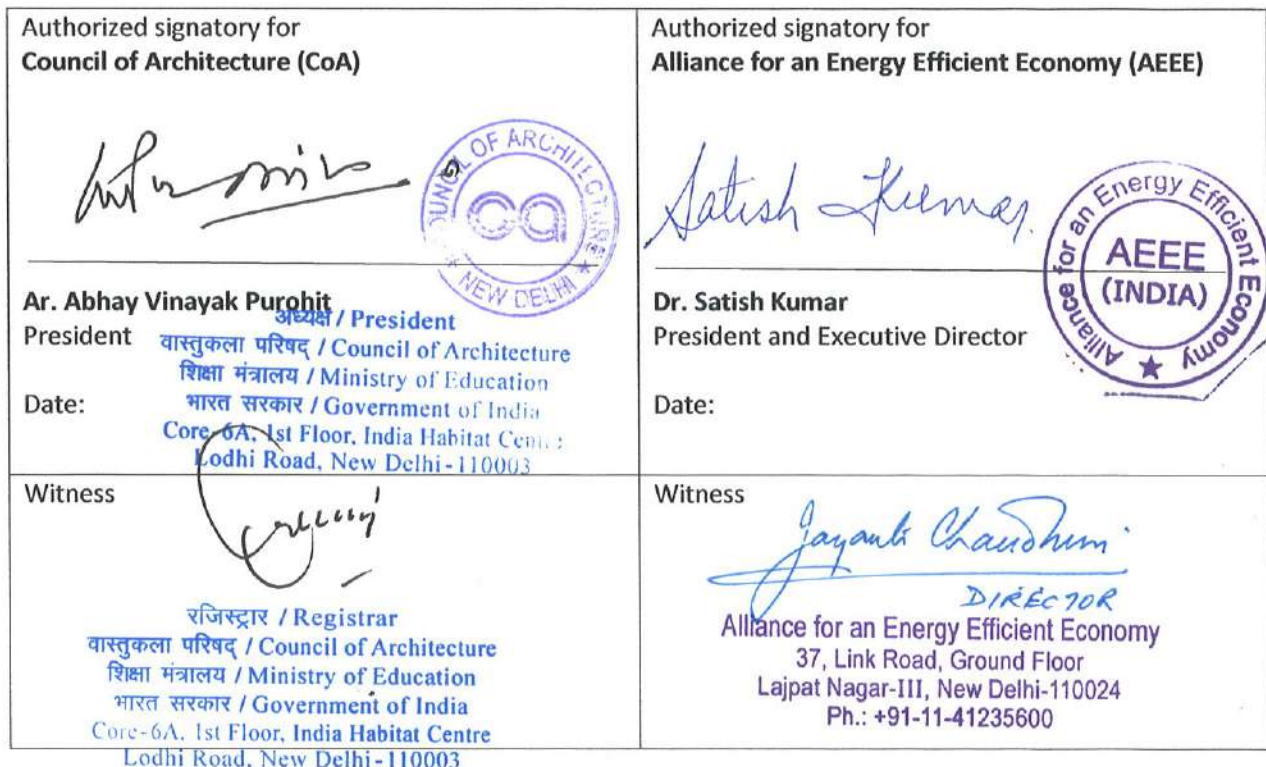 Authorized signatory for
Council of Architecture (CoA)
COUNCIL OF ARCHITECTURE
★ NEW DELHI ★
Ar. Abhay Vinayak Purohit
President
अध्यक्ष / President
वास्तुकला परिषद् / Council of Architecture
शिक्षा मंत्रालय / Ministry of Education
भारत सरकार / Government of India
Core-6A, 1st Floor, India Habitat Centre
Lodhi Road, New Delhi-110003
Date:
Authorized signatory for
Alliance for an Energy Efficient Economy (AEEE)
Satish Kumar
Alliance for an Energy Efficient Economy
AEEE
(INDIA)
★
Dr. Satish Kumar
President and Executive Director
Date:
Witness
रजिस्ट्रार / Registrar
वास्तुकला परिषद् / Council of Architecture
शिक्षा मंत्रालय / Ministry of Education
भारत सरकार / Government of India
Core-6A, 1st Floor, India Habitat Centre
Lodhi Road, New Delhi-110003
Witness
Jayanti Chaudhuri
DIRECTOR
Alliance for an Energy Efficient Economy
37, Link Road, Ground Floor
Lajpat Nagar-III, New Delhi-110024
Ph.: +91-11-41235600